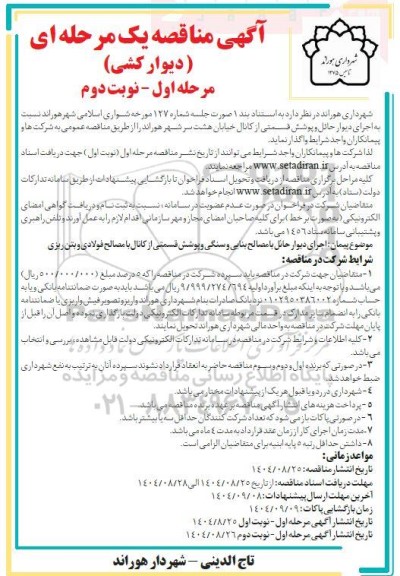 آگهی مناقصه یک مرحله ای
(دیوارکشی)
مرحله اول - نوبت دوم
شهرداری هوراند
شهرداری هوراند در نظر دارد به استناد بند ۱ صورت جلسه شماره ۱۲۷ مورخه شورای اسلامی شهر هوراند نسبت
به اجرای دیوار حائل و پوشش قسمتی از کانال خیابان هشت سر شهر هوراند را از طریق مناقصه عمومی به شرکت ها و
پیمانکاران واجد شرایط واگذار نماید.
لذا شرکت ها و پیمانکاران واجد شرایط می توانند از تاریخ نشر مناقصه مرحله اول (نوبت اول) جهت دریافت اسناد
مناقصه به آدرس www.setadiran.ir مراجعه نمایند.
کلیه مراحل برگزاری مناقصه از دریافت و تحویل اسناد فراخوان تا بازگشایی پیشنهادات از طریق سامانه تدارکات
دولت (ستاد) به آدرس www.setadiran.ir انجام خواهد شد.
متقاضیان شرکت در فراخوان در صورت عدم عضویت در سامانه، نسبت به ثبت نام و دریافت گواهی امضای
الکترونیکی (به صورت بر خط) برای کلیه صاحبان امضای مجاز و مهر سازمانی اقدام لازم را به عمل آورند و تلفن راهبری و
پشتیبانی سامانه ستاد ۱۴۵۶ می باشد.
موضوع پیمان: اجرای دیوار حائل با مصالح بنایی و سنگی و پوشش قسمتی از کانال با مصالح فولادی و بتن ریزی
شرایط شرکت در مناقصه:
۱- متقاضیان جهت شرکت در مناقصه باید سپرده شرکت در مناقصه را که ۵ درصد مبلغ (۵۰۰/۰۰۰/۰۰۰ ریال)
می باشد و با توجه به اینکه مبلغ برآورد اولیه ۹/۹۹۹/۲۷۴/۶۹۴ ریال می باشد باید به صورت ضمانتنامه بانکی و یا به
حساب شماره ۰۱۰۲۹۵۰۳۸۶۰۰۲ نزد بانک صادرات بنام شهرداری هوراند واریز و تصویر فیش واریزی یا ضمانتنامه
بانکی را به انضمام سایر مدارک در قسمت مربوطه سامانه تدارکات الکترونیکی دولت بارگذاری نموده و اصل آن را قبل از
پایان مهلت شرکت در مناقصه به واحد مالی شهرداری هوراند تحویل نمایند.
۲- کلیه اطلاعات و شرایط شرکت در مناقصه در سامانه تدارکات الکترونیکی دولت قابل مشاهده، بررسی و انتخاب
می باشد.
۳- در صورتی که برنده اول و دوم و سوم مناقصه حاضر به انعقاد قرارداد نشوند سپرده آنان به ترتیب به نفع شهرداری
ضبط خواهد شد.
۴- شهرداری در رد و یا قبول هر یک از پیشنهادات مختار می باشد.
۵- پرداخت هزینه های انتشار آگهی مناقصه بر عهده برنده مناقصه می باشد.
۶- در صورتی پاکات باز می شود که تعداد شرکت کنندگان حداقل سه یا بیشتر باشد.
۷- مدت زمان اجرای کار از زمان عقد قرارداد به مدت ۴ ماه می باشد.
۸- داشتن حداقل رتبه ۵ پایه ابنیه برای متقاضیان الزامی است.
مواعد زمانی:
تاریخ انتشار مناقصه: ۱۴۰۴/۰۸/۲۵
مهلت دریافت اسناد مناقصه: از تاریخ ۱۴۰۴/۰۸/۲۵ الی ۱۴۰۴/۰۸/۲۸
آخرین مهلت ارسال پیشنهادات: ۱۴۰۴/۰۹/۰۸
زمان بازگشایی پاکات: ۱۴۰۴/۰۹/۰۹
تاریخ انتشار آگهی مرحله اول - نوبت اول ۱۴۰۴/۸/۲۵
تاریخ انتشار آگهی مرحله اول - نوبت دوم ۱۴۰۴/۰۸/۲۶
تاج الدینی - شهردار هوراند